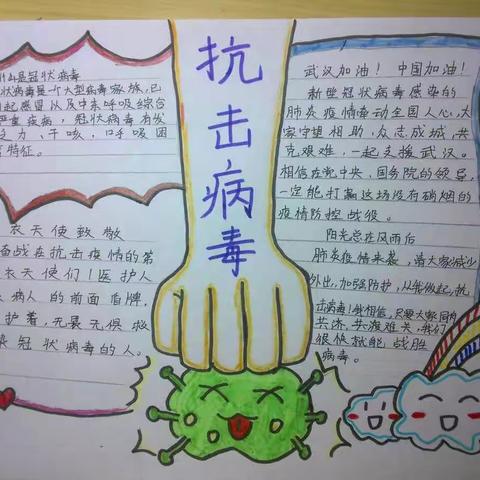 什么是冠状病毒
状病毒是一个大型病毒家族,已
引起感冒以及中东呼吸综合
严重疾病,冠状病毒有发
乏力、干咳、呼吸困
特征。
衣天使致敬
奋战在抗击疫情的第
衣天使们!医护人
病人的前面盾牌,
护着,无畏无惧救
染冠状病毒的人。
抗击病毒
武汉加油!中国加油!
新型冠状病毒感染的
肺炎疫情牵动全国人心,大
家守望相助,众志成城,共
克艰难,一起支援武汉。
相信在党中央、国务院的领导,
一定能打赢这场没有硝烟的
疫情防控战役。
阳光总在风雨后
肺炎疫情来袭,请大家减少
外出,加强防护,从我做起,抗
击病毒!我相信,只要大家同舟
共济,共渡难关,我们
很快就能战胜
病毒。